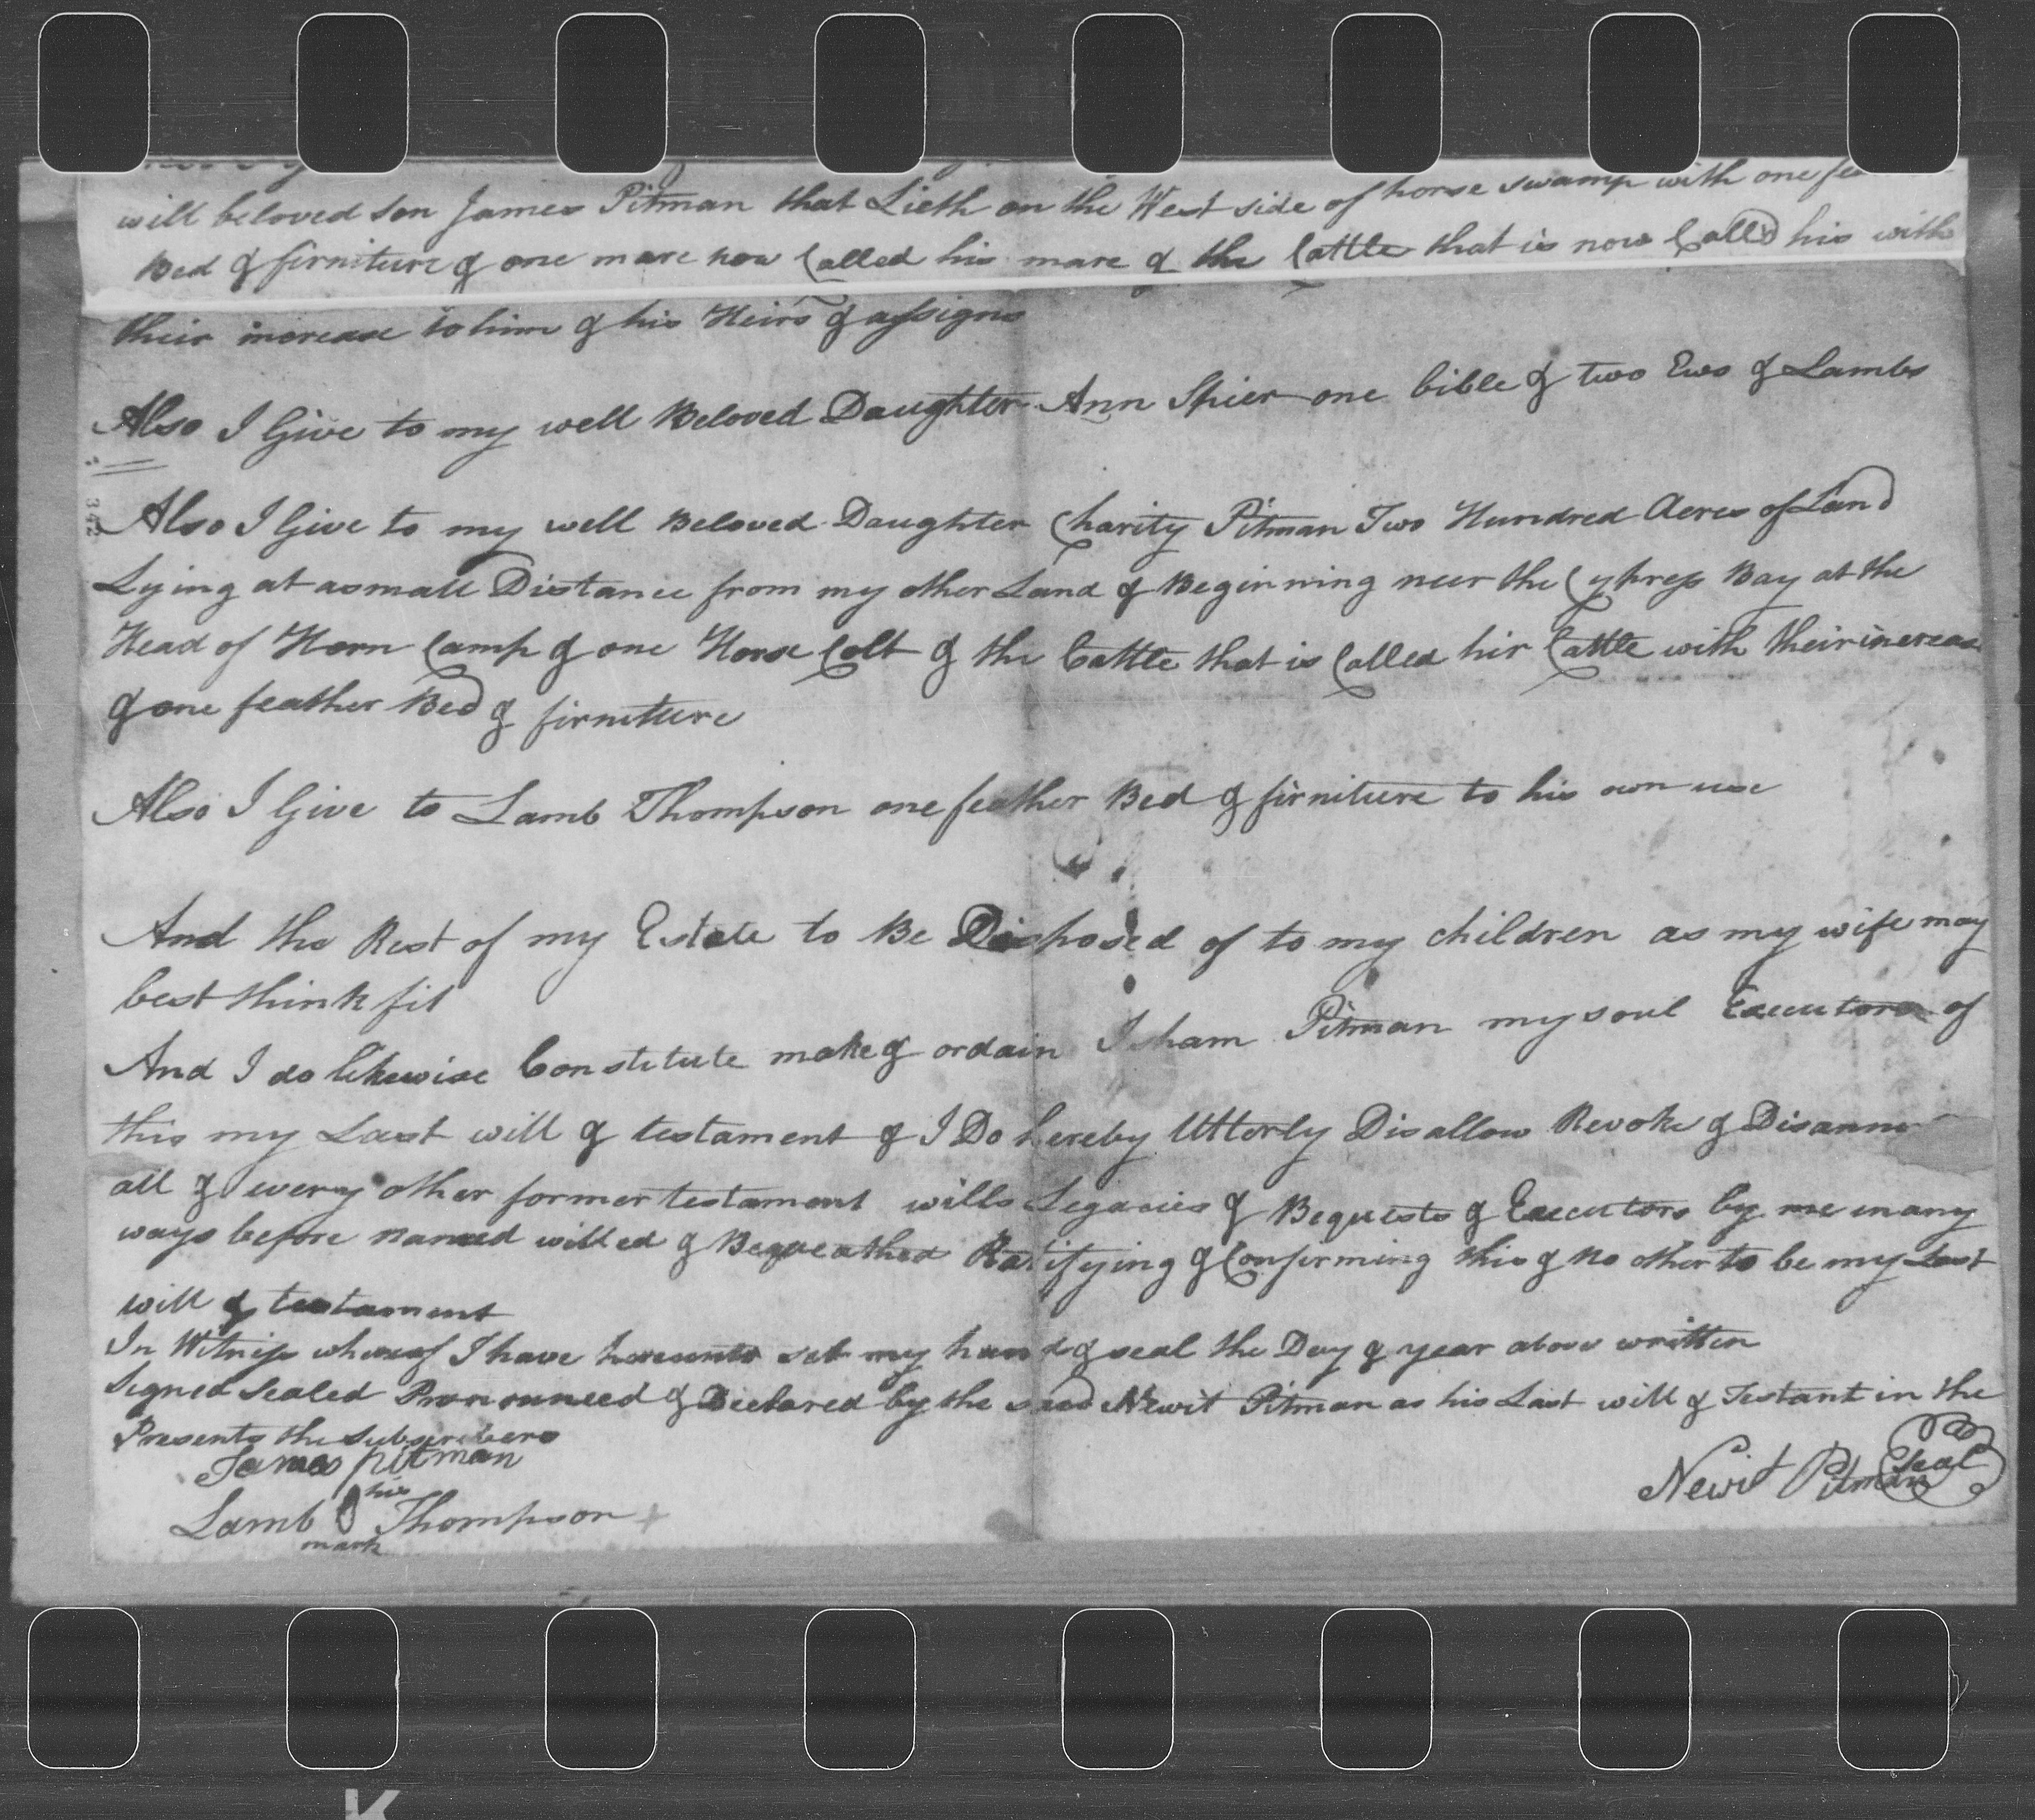 will beloved son James Pitman that Lieth on the West side of horse swamp with one
Bed & firniture & one mare now Called his mare & the Cattle that is now Called his with
their increase to him & his Heirs & assigns
Also I Give to my well Beloved Daughter Ann Spier one bible & two Ews & Lambs
342
Also I Give to my well Beloved Daughter Charity Pitman Two Hundred Acres of Land
Lying at a small Distance from my other Land & Beginning neer the Cypress Bay at the
Head of Horn Camp & one Horse Colt & the Cattle that is Called hir Cattle with their increas
& one feather Bed & firniture
Also I Give to Lamb Thompson one feather Bed & firniture to his own use
And the Rest of my Estate to Be Disposed of to my children as my wife may
best think fit
And I do likewise Constitute make & ordain Isham Pitman my soul Executors of
this my Last will & testament & I Do hereby Utterly Disallow Revoke &
all & every other former testament wills Legacies & Bequests & Executors by me in any
ways before named willed & Bequeathed Ratifying & Confirming this & no other to be my Last
will & testament
In Witness whereof I have hereunto set my hand & seal the Day & year above written
Signed Sealed Pronounced & Declared by the said Newit Pitman as his Last will & Testant in the
Presents the subscribers
James pitman
his
Lamb Thompson
mark
Newit Pitman Seal
K